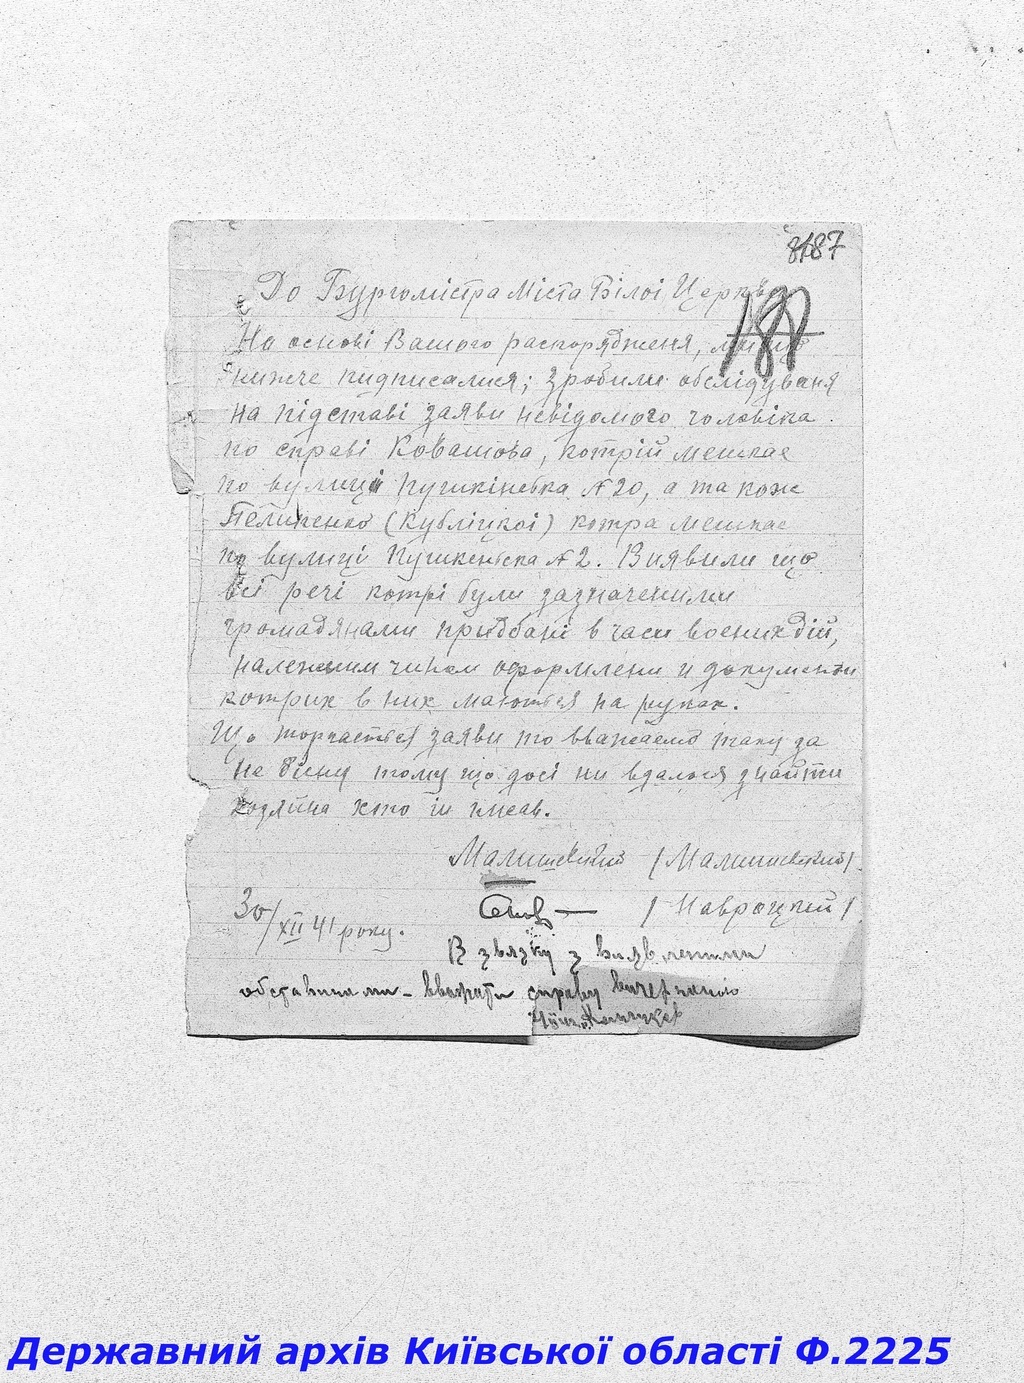 87
До Бургомістра Міста Білоі Церкви
187
На основі Вашого распорядженя, ми що
нижче пидписалися; зробили обслідуваня
на підставі заяви невідомого чоловіка
по справі Ковашова, котрій мешкае
по вулиці Пушкінська № 20, а також
Пелипенко (Кубліцкоі) котра мешкае
по вулиці Пушкенська № 2. Виявили що
всі речі котрі були зазначеними
громадянами придбані в часи воених дій,
належним чином оформлени и документи
котрих в них маються на руках.
Що торкаеться заяви то вважаемо таку за
не вісну тому що досі ни вдалося знайти
хозяйна хто ії писав.
Малишевский /Малишевский/
/Навроцкий/
30/XII 41 року.
В звязку з виявленими
обставинами - вважати справу вичерпаною